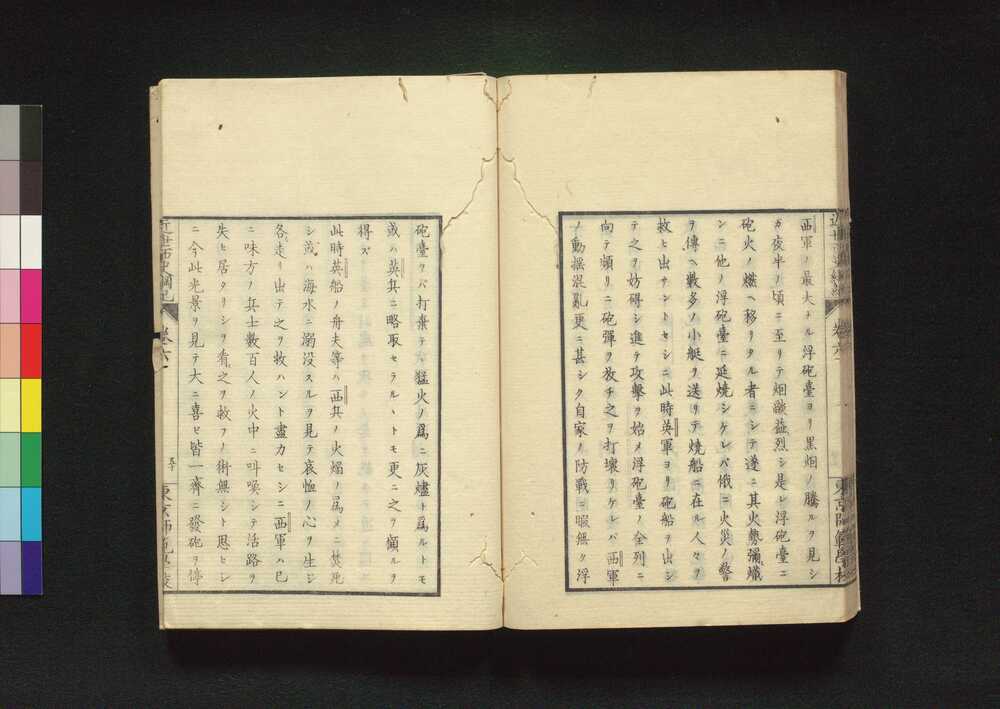 西軍ノ最大ナル浮砲臺ヨリ黒烟ノ騰ルヲ見シ
ガ夜半ノ頃ニ至リテ烟燄益烈シ是レ浮砲臺ニ
砲火ノ燃ヘ移リタル者ニシテ遂ニ其火勢彌熾
ンニ他ノ浮砲臺ニ延燒シケレバ俄ニ火災ノ警
ヲ傳ヘ數多ノ小艇ヲ送リテ燒船ニ在ル人々ヲ
救ヒ出サントセシニ此時英軍ヨリ砲船ヲ出シ
テ之ヲ妨碍シ進テ攻擊ヲ始メ浮砲臺ノ全列ニ
向テ頻リニ砲彈ヲ放チ之ヲ打壞リケレバ西軍
ノ動搖混亂更ニ甚シク自家ノ防戰ニ暇無ク浮
砲臺ヲバ打棄テ猛火ノ爲ニ灰燼ト爲ルトモ
或ハ英兵ニ略取セラルヽトモ更ニ之ヲ顧ルヲ
得ズ
此時英船ノ舟夫等ハ西兵ノ火焔ノ爲メニ焚死
シ或ハ海水ニ溺没スルヲ見テ哀恤ノ心ヲ生ジ
各走リ出テ之ヲ救ハント盡力セシニ西軍ハ已
ニ味方ノ兵士數百人ノ火中ニ叫喚シテ活路ヲ
失ヒ居タリシヲ看之ヲ救フノ術無シト思ヒシ
ニ今此光景ヲ見テ大ニ喜ヒ皆一齊ニ發砲ヲ停
近世西史綱紀
卷六
東京師範學校